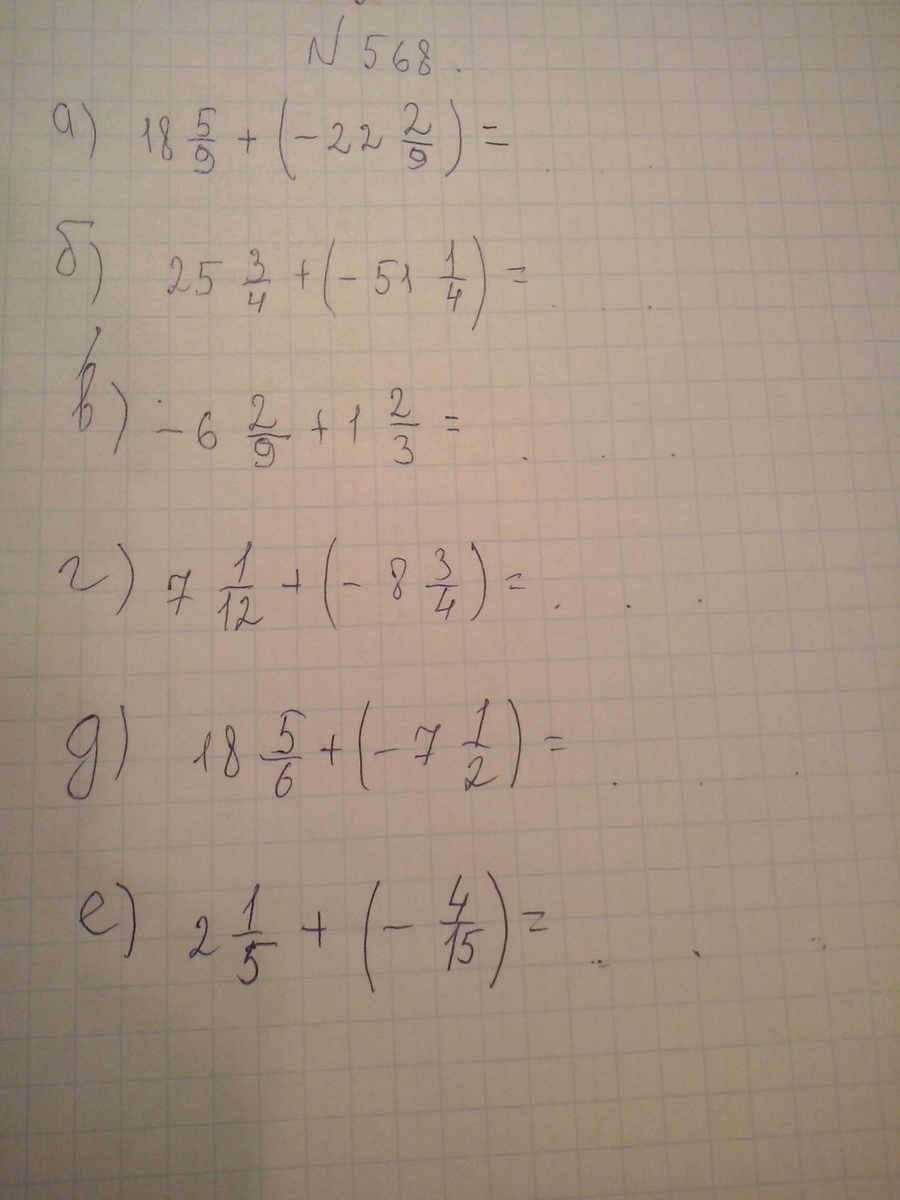 N 568.
а) 18 5/9 + (-22 2/9) =
б) 25 3/4 + (-51 1/4) =
в) -6 2/9 + 1 2/3 =
г) 7 1/12 + (-8 3/4) =
д) 18 5/6 + (-7 1/2) =
е) 2 1/5 + (-4/15) =